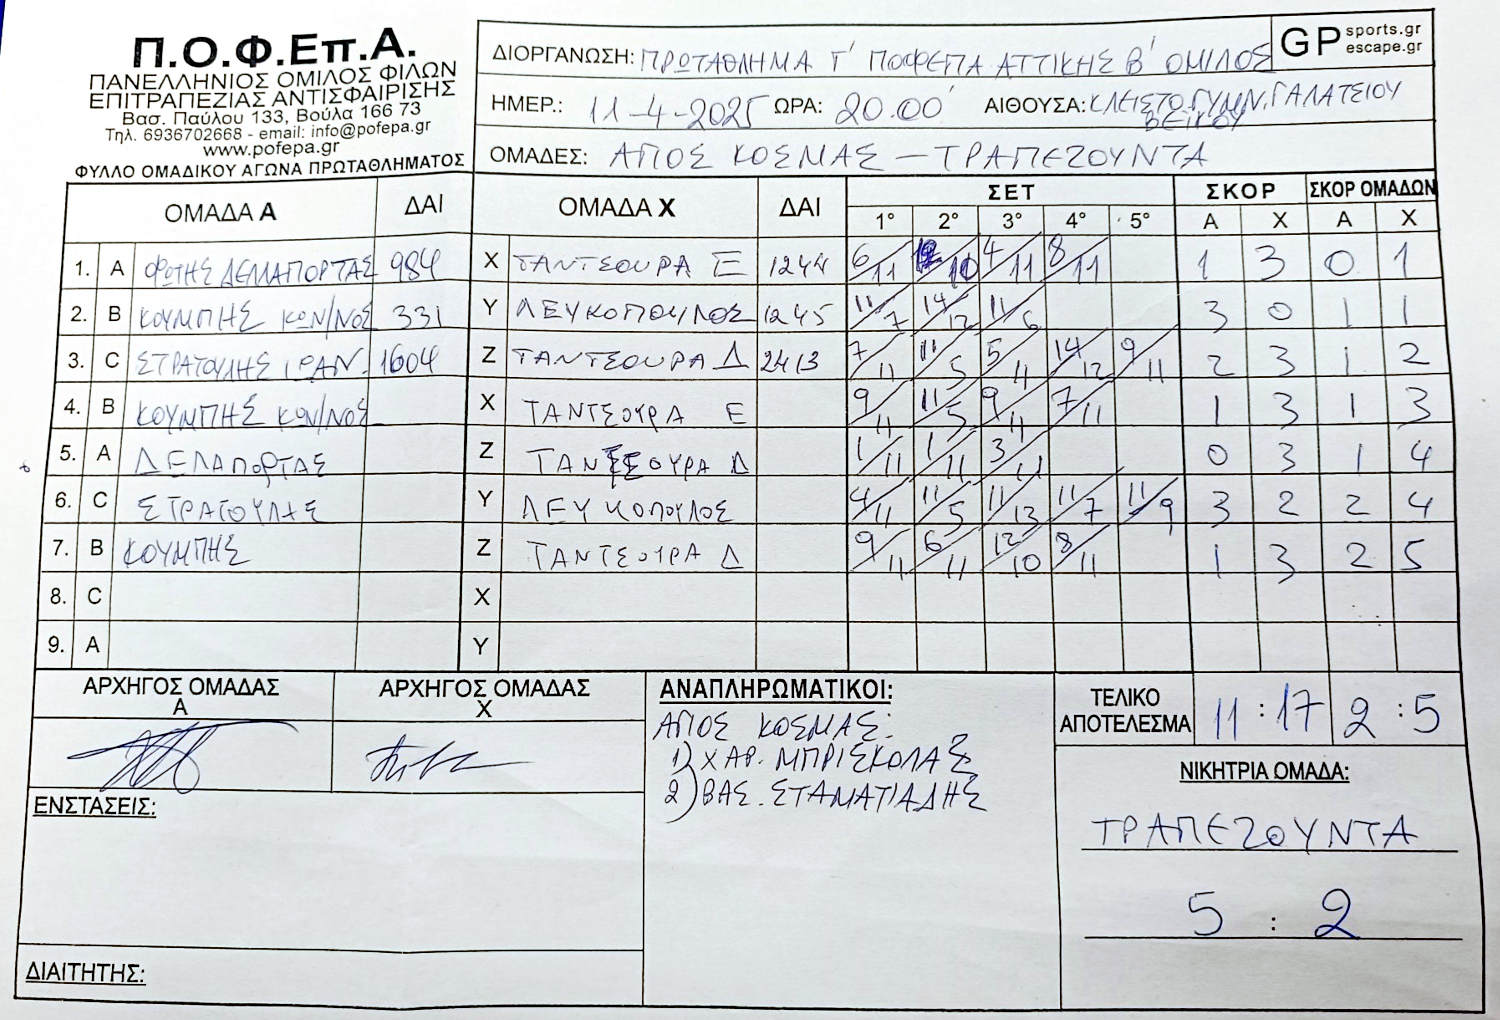 Π.Ο.Φ.Επ.Α.
ΠΑΝΕΛΛΗΝΙΟΣ ΟΜΙΛΟΣ ΦΙΛΩΝ
ΕΠΙΤΡΑΠΕΖΙΑΣ ΑΝΤΙΣΦΑΙΡΙΣΗΣ
Βασ. Παύλου 133, Βούλα 166 73
Τηλ. 6936702668 - email: info@pofepa.gr
www.pofepa.gr
ΦΥΛΛΟ ΟΜΑΔΙΚΟΥ ΑΓΩΝΑ ΠΡΩΤΑΘΛΗΜΑΤΟΣ
ΔΙΟΡΓΑΝΩΣΗ: ΠΡΩΤΑΘΛΗΜΑ Γ' ΠΟΦΕΠΑ ΑΤΤΙΚΗΣ Β' ΟΜΙΛΟΣ
GP sports.gr
escape.gr
ΗΜΕΡ.: 11-4-2025 ΩΡΑ: 20.00' ΑΙΘΟΥΣΑ: ΚΛΕΙΣΤΟ ΓΥΜΝ. ΓΑΛΑΤΣΙΟΥ
ΒΕΙΚΟΥ
ΟΜΑΔΕΣ: ΑΓΙΟΣ ΚΟΣΜΑΣ - ΤΡΑΠΕΖΟΥΝΤΑ
ΟΜΑΔΑ Α ΔΑΙ ΟΜΑΔΑ Χ ΔΑΙ ΣΕΤ ΣΚΟΡ ΣΚΟΡ ΟΜΑΔΩΝ
1° 2° 3° 4° 5° Α Χ Α Χ
1. Α ΦΩΤΗΣ ΔΕΛΑΠΟΡΤΑΣ 984 Χ ΤΑΝΤΣΟΥΡΑ Ε 1244 6/11 12/10 4/11 8/11 1 3 0 1
2. Β ΚΟΥΜΠΗΣ ΚΩΝ/ΝΟΣ 331 Υ ΛΕΥΚΟΠΟΥΛΟΣ 1245 11/7 14/12 11/6 3 0 1 1
3. C ΣΤΡΑΤΟΥΛΗΣ ΙΩΑΝ. 1604 Ζ ΤΑΝΤΣΟΥΡΑ Δ 2413 7/11 11/5 5/11 14/12 9/11 2 3 1 2
4. Β ΚΟΥΜΠΗΣ ΚΩΝ/ΝΟΣ Χ ΤΑΝΤΣΟΥΡΑ Ε 9/11 11/5 9/11 7/11 1 3 1 3
5. Α ΔΕΛΑΠΟΡΤΑΣ Ζ ΤΑΝΤΣΟΥΡΑ Δ 1/11 1/11 3/11 0 3 1 4
6. C ΣΤΡΑΤΟΥΛΗΣ Υ ΛΕΥΚΟΠΟΥΛΟΣ 4/11 11/5 11/13 11/7 11/9 3 2 2 4
7. Β ΚΟΥΜΠΗΣ Ζ ΤΑΝΤΣΟΥΡΑ Δ 9/11 6/11 12/10 8/11 1 3 2 5
8. C Χ
9. Α Υ
ΑΡΧΗΓΟΣ ΟΜΑΔΑΣ Α
ΑΡΧΗΓΟΣ ΟΜΑΔΑΣ Χ
ΕΝΣΤΑΣΕΙΣ:
ΔΙΑΙΤΗΤΗΣ:
ΑΝΑΠΛΗΡΩΜΑΤΙΚΟΙ:
ΑΓΙΟΣ ΚΟΣΜΑΣ:
1) ΧΑΡ. ΜΠΡΙΣΚΟΛΑΣ
2) ΒΑΣ. ΣΤΑΜΑΤΙΑΔΗΣ
ΤΕΛΙΚΟ ΑΠΟΤΕΛΕΣΜΑ 11 : 17 2 : 5
ΝΙΚΗΤΡΙΑ ΟΜΑΔΑ:
ΤΡΑΠΕΖΟΥΝΤΑ
5 : 2